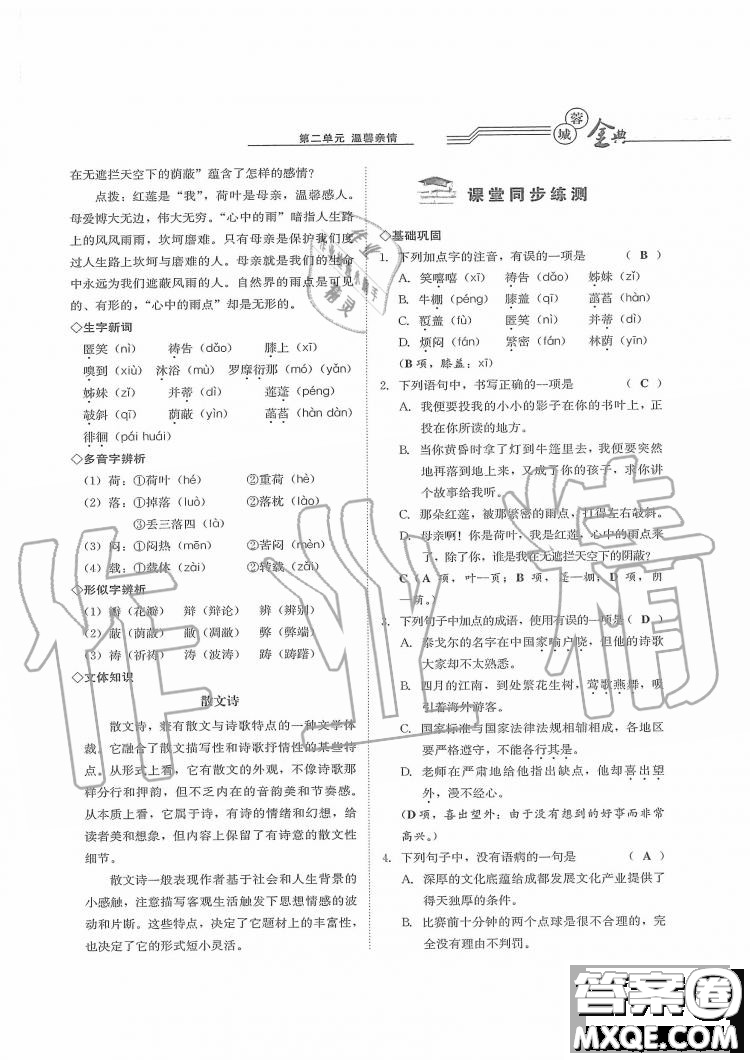 第二单元 温馨亲情
蓉城金典
在无遮拦天空下的荫蔽”蕴含了怎样的感情?
点拨:红莲是“我”,荷叶是母亲,温馨感人。
母爱博大无边,伟大无穷。“心中的雨”暗指人生路
上的风风雨雨,坎坷磨难。只有母亲是保护我们度
过人生路上坎坷与磨难的人。母亲就是我们的生命
中永远为我们遮蔽风雨的人。自然界的雨点是可见
的、有形的,“心中的雨点”却是无形的。
◇生字新词
匿笑(nì) 祷告(dǎo) 膝上(xī)
嗅到(xiù) 沐浴(mù yù) 罗摩衍那(mó)(yǎn)
姊妹(zǐ) 并蒂(dì) 莲蓬(péng)
敧斜(qī) 荫蔽(yìn) 菡萏(hàn dàn)
徘徊(pái huái)
◇多音字辨析
(1)荷:①荷叶(hé) ②重荷(hè)
(2)落:①掉落(luò) ②落枕(lào)
③丢三落四(là)
(3)闷:①闷热(mēn) ②苦闷(mèn)
(4)载:①载体(zài) ②转载(zǎi)
◇形似字辨析
(1)瓣(花瓣) 辩(辩论) 辨(辨别)
(2)蔽(荫蔽) 敝(凋敝) 弊(弊端)
(3)祷(祈祷) 涛(波涛) 踌(踌躇)
◇文体知识
散文诗
散文诗,兼有散文与诗歌特点的一种文学体
裁。它融合了散文描写性和诗歌抒情性的某些特
点。从形式上看,它有散文的外观,不像诗歌那
样分行和押韵,但不乏内在的音韵美和节奏感。
从本质上看,它属于诗,有诗的情绪和幻想,给
读者美和想象,但内容上保留了有诗意的散文性
细节。
散文诗一般表现作者基于社会和人生背景的
小感触,注意描写客观生活触发下思想情感的波
动和片断。这些特点,决定了它题材上的丰富性,
也决定了它的形式短小灵活。
课堂同步练测
◇基础巩固
1. 下列加点字的注音,有误的一项是 ( B )
A. 笑嘻嘻(xī) 祷告(dǎo) 姊妹(zǐ)
B. 牛棚(péng) 膝盖(qī) 菡萏(hàn)
C. 覆盖(fù) 匿笑(nì) 并蒂(dì)
D. 烦闷(fán) 繁密(fán) 林荫(yīn)
(B项,膝盖:xī)
2. 下列语句中,书写正确的一项是 ( C )
A. 我便要投我的小小的影子在你的书叶上,正
投在你所读的地方。
B. 当你黄昏时拿了灯到牛篷里去,我便要突然
地再落到地上来,又成了你的孩子,求你讲
故事给我听。
C. 那朵红莲,被那繁密的雨点,打得左右敧斜。
D. 母亲啊!你是荷叶,我是红莲,心中的雨点来
了,除了你,谁是我在无遮拦天空下的阴蔽?
C(A项,叶—页;B项,篷—棚;D项,阴
—荫。)
3. 下列句子中加点的成语,使用有误的一项是 ( D )
A. 泰戈尔的名字在中国家喻户晓,但他的诗歌
大家却不大熟悉。
B. 四月的江南,到处繁花生树,莺歌燕舞,吸
引着海外游客。
C. 国家标准与国家法律法规相辅相成,各地区
要严格遵守,不能各行其是。
D. 老师在严肃地给他指出缺点,他却喜出望
外,漫不经心。
(D项,喜出望外:由于没有想到的好事而非常
高兴。)
4. 下列句子中,没有语病的一句是 ( A )
A. 深厚的文化底蕴给成都发展文化产业提供了
得天独厚的条件。
B. 比赛前十分钟的两个点球是很不合理的,完
全没有理由不判罚。
作业精
答案卷
MXQE.COM